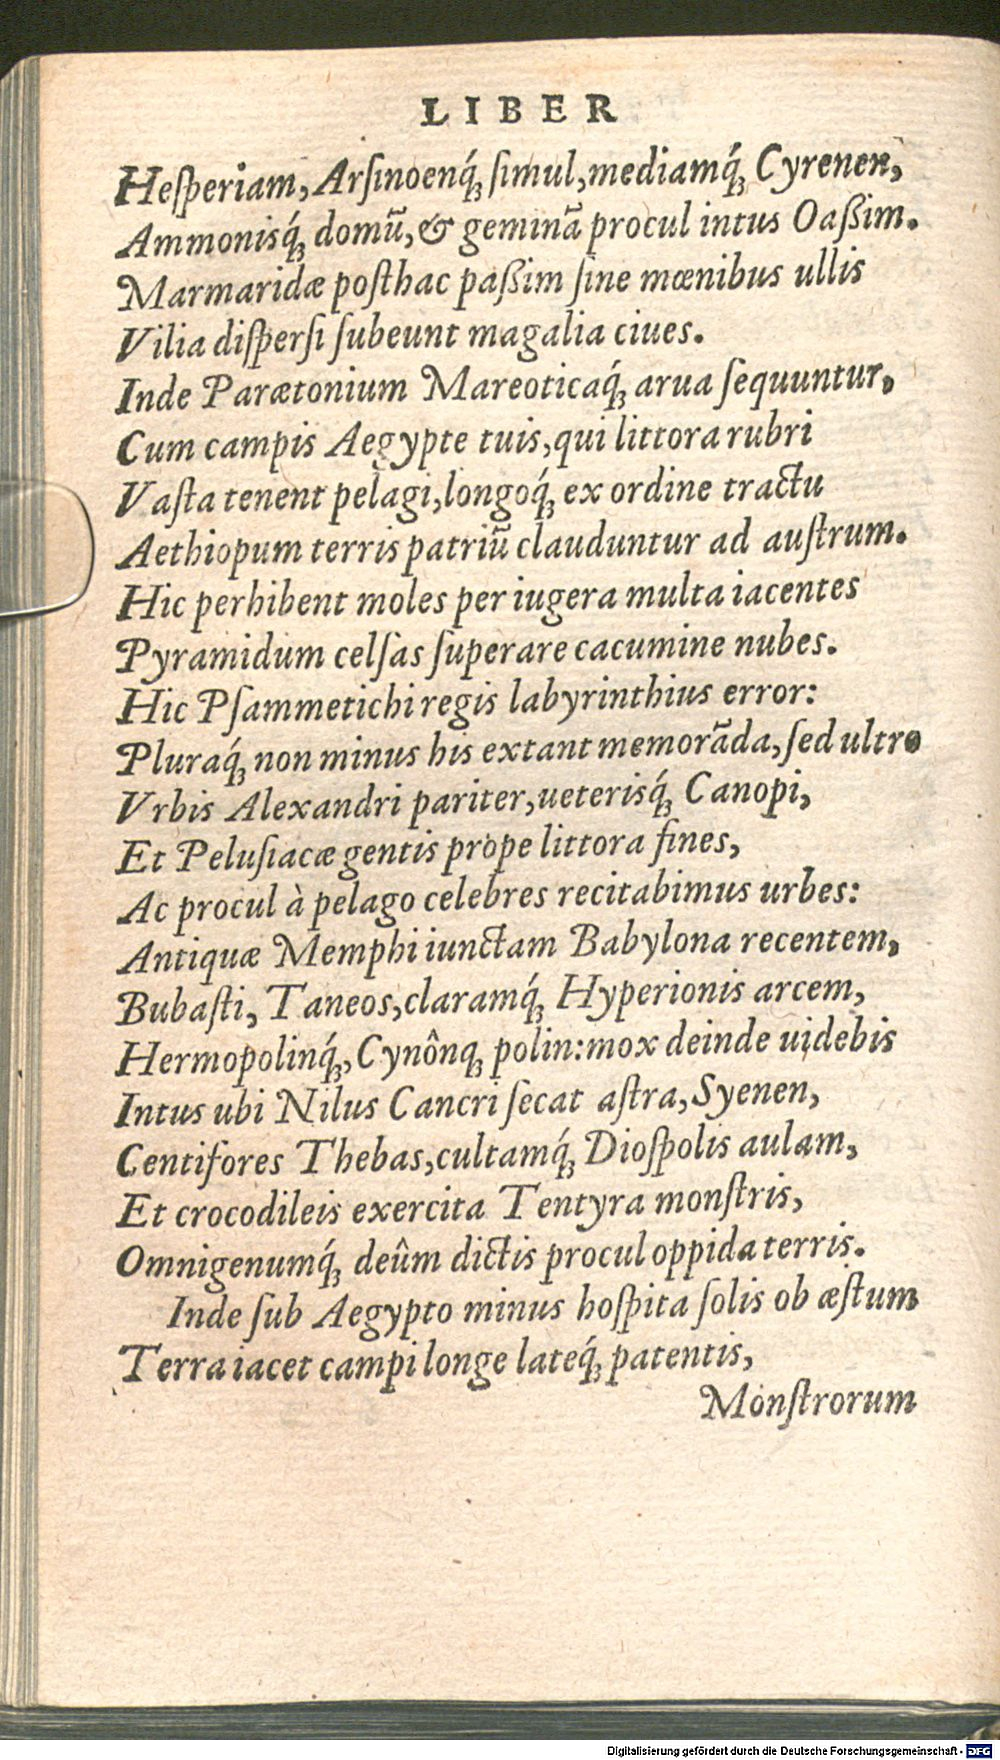 LIBER
Heſperiam, Arſinoenq́ꝫ ſimul, mediamq́ꝫ Cyrenen,
Ammonisq́ꝫ domū, & geminā procul intus Oaßim.
Marmaridæ poſthac paßim ſine mœnibus ullis
Vilia diſperſi ſubeunt magalia ciues.
Inde Parætonium Mareoticaq́ꝫ arua ſequuntur,
Cum campis Aegypte tuis, qui littora rubri
Vaſta tenent pelagi, longoq́ꝫ ex ordine tractu
Aethiopum terris patriū clauduntur ad auſtrum.
Hic perhibent moles per iugera multa iacentes
Pyramidum celſas ſuperare cacumine nubes.
Hic Pſammetichi regis labyrinthius error:
Pluraq́ꝫ non minus his extant memorāda, ſed ultro
Vrbis Alexandri pariter, ueterisq́ꝫ Canopi,
Et Peluſiacæ gentis prope littora fines,
Ac procul à pelago celebres recitabimus urbes:
Antiquæ Memphi iunctam Babylona recentem,
Bubaſti, Taneos, claramq́ꝫ Hyperionis arcem,
Hermopolinq́ꝫ, Cynônqꝫ polin: mox deinde uidebis
Intus ubi Nilus Cancri ſecat aſtra, Syenen,
Centifores Thebas, cultamq́ꝫ Dioſpolis aulam,
Et crocodileis exercita Tentyra monſtris,
Omnigenumq́ꝫ deûm dictis procul oppida terris.
Inde ſub Aegypto minus hoſpita ſolis ob æſtum
Terra iacet campi longe lateq́ꝫ patentis,
Monſtrorum
Digitalisierung gefördert durch die Deutsche Forschungsgemeinschaft - DFG